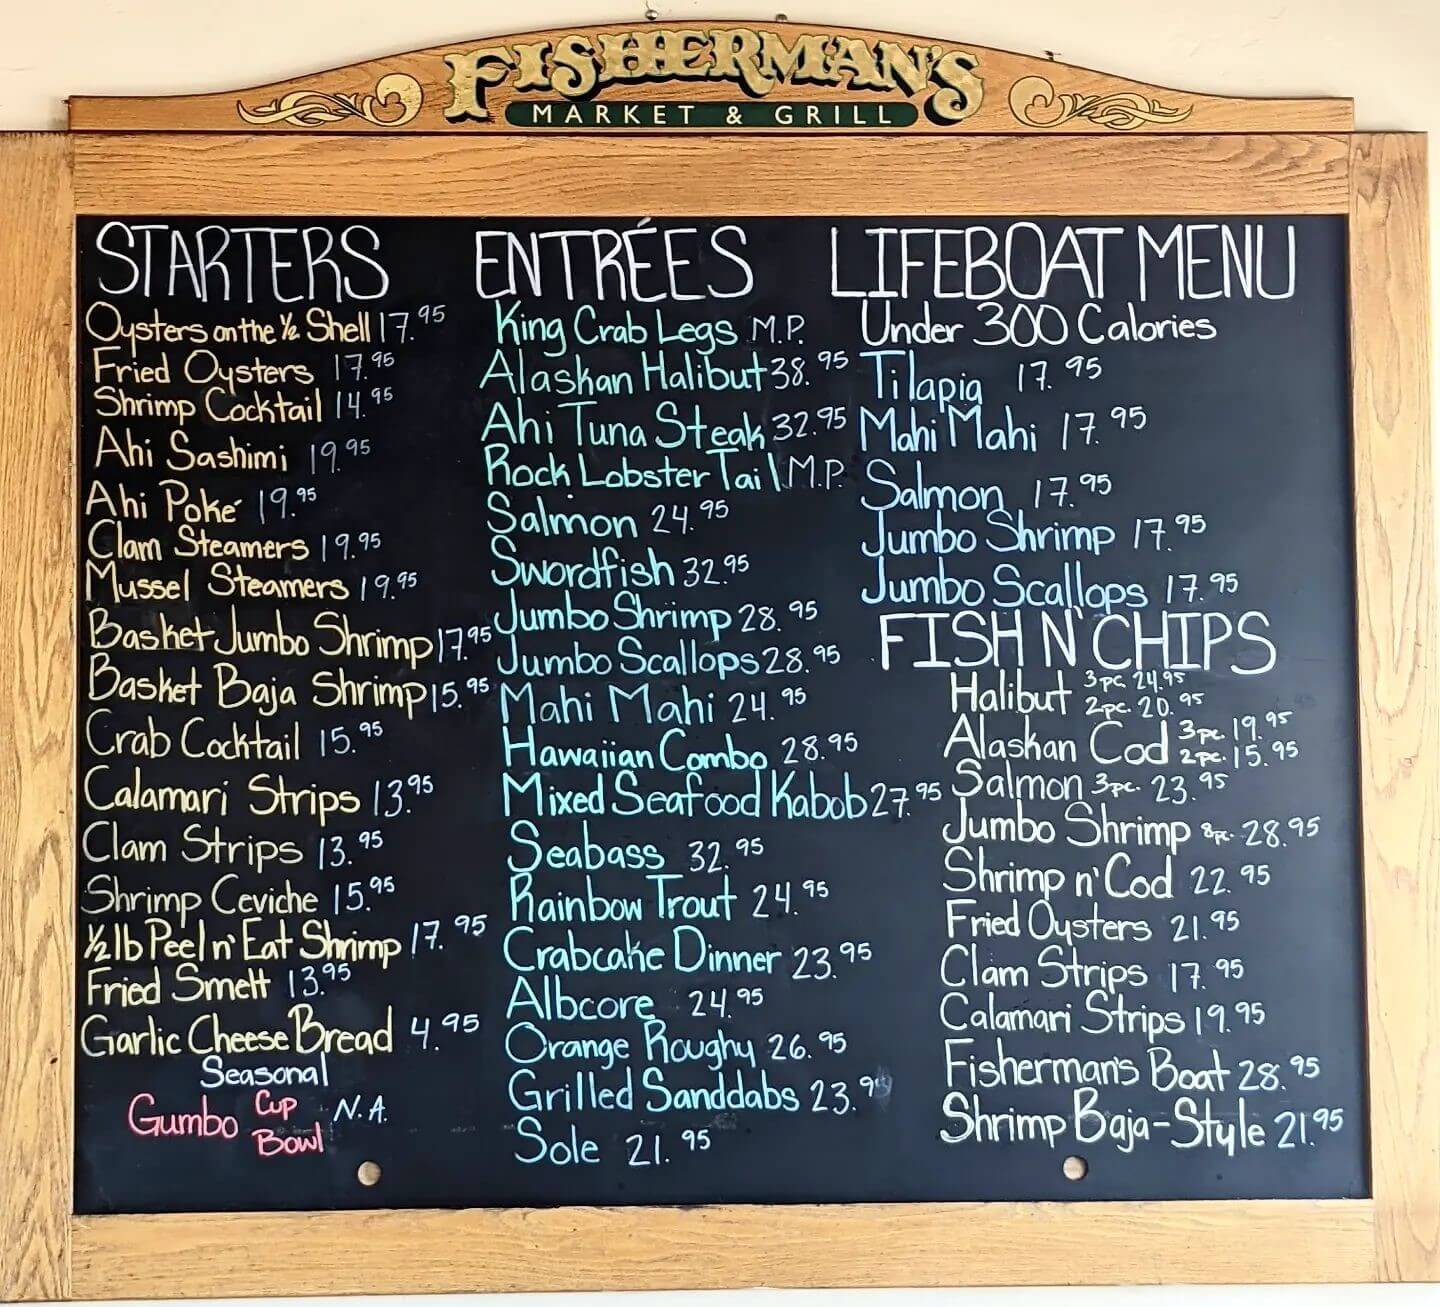 FISHERMAN'S
MARKET & GRILL
STARTERS
Oysters on the ½ Shell 17.95
Fried Oysters 17.95
Shrimp Cocktail 14.95
Ahi Sashimi 19.95
Ahi Poké 19.95
Clam Steamers 19.95
Mussel Steamers 19.95
Basket Jumbo Shrimp 17.95
Basket Baja Shrimp 15.95
Crab Cocktail 15.95
Calamari Strips 13.95
Clam Strips 13.95
Shrimp Ceviche 15.95
½ lb Peel n' Eat Shrimp 17.95
Fried Smelt 13.95
Garlic Cheese Bread 4.95
Seasonal
Gumbo Cup N.A.
Bowl
ENTRÉES
King Crab Legs M.P.
Alaskan Halibut 38.95
Ahi Tuna Steak 32.95
Rock Lobster Tail M.P.
Salmon 24.95
Swordfish 32.95
Jumbo Shrimp 28.95
Jumbo Scallops 28.95
Mahi Mahi 24.95
Hawaiian Combo 28.95
Mixed Seafood Kabob 27.95
Seabass 32.95
Rainbow Trout 24.95
Crabcake Dinner 23.95
Albcore 24.95
Orange Roughy 26.95
Grilled Sanddabs 23.9
Sole 21.95
LIFEBOAT MENU
Under 300 Calories
Tilapia 17.95
Mahi Mahi 17.95
Salmon 17.95
Jumbo Shrimp 17.95
Jumbo Scallops 17.95
FISH N' CHIPS
Halibut 3pc. 24.95
2pc. 20.95
Alaskan Cod 3pc. 19.95
2pc. 15.95
Salmon 3pc. 23.95
Jumbo Shrimp 8pc. 28.95
Shrimp n' Cod 22.95
Fried Oysters 21.95
Clam Strips 17.95
Calamari Strips 19.95
Fisherman's Boat 28.95
Shrimp Baja-Style 21.95